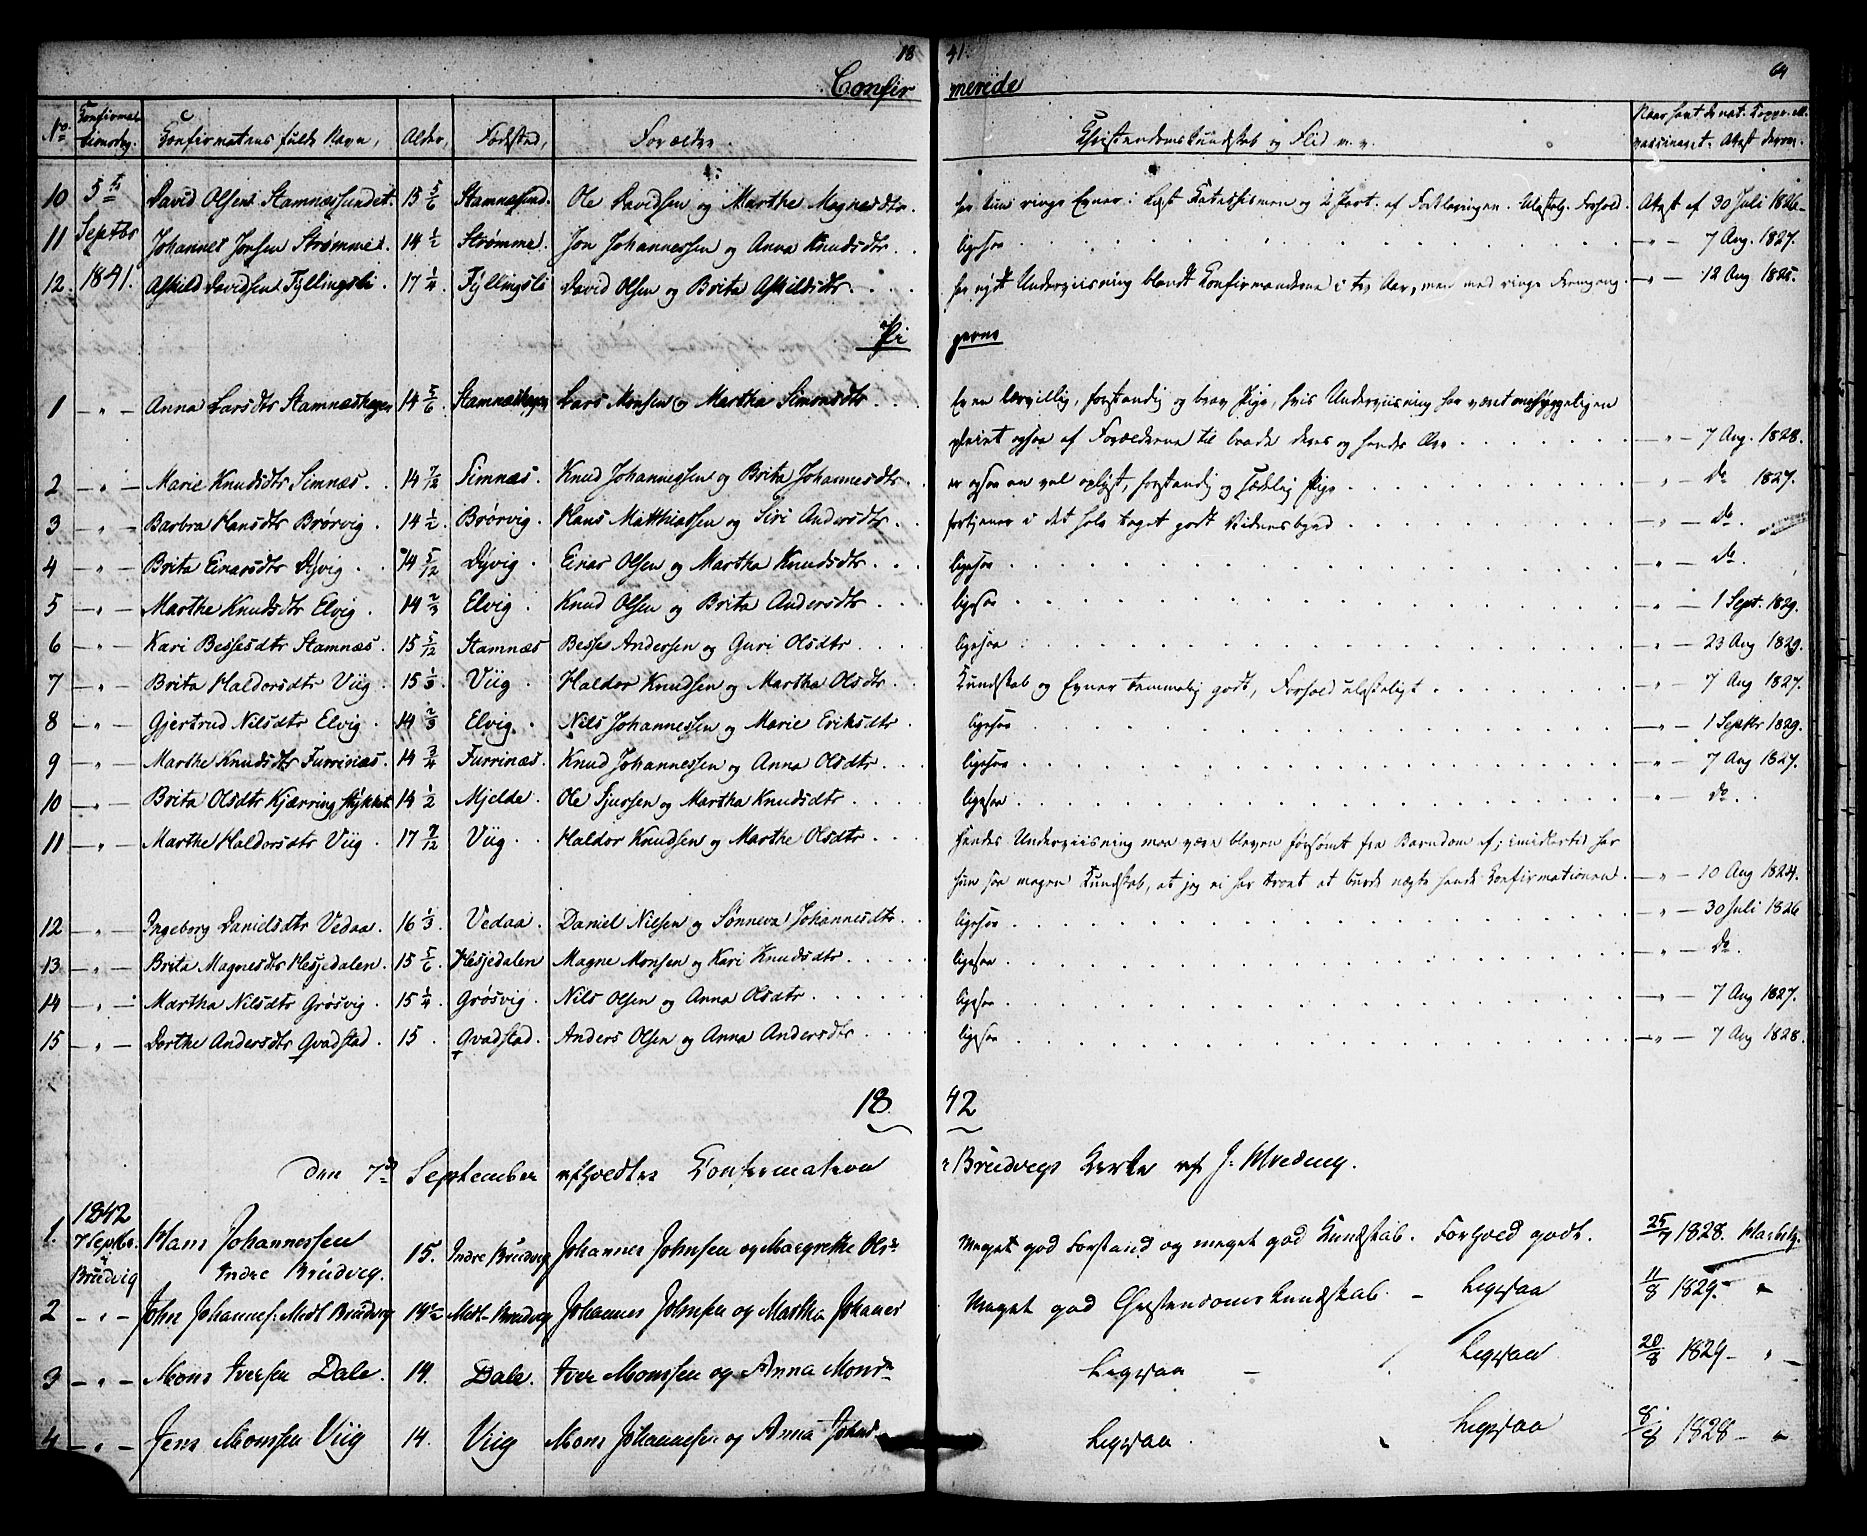 18 41. 64
Confir merede
No. Confirmations dag. Confirmatens fulde Navn, Alder, Fødsted, Forældre. Christendomskundskab og Flid m. v. Naar havt de nat. Kopper ell. vaccineret. Attest derom.
10 5te David Olsen Stamnessundet. 15 5/6 Stamnessund. Ole Davidsen og Marthe Magnesdtr. har kun ringe Evner. Læst Katechismen og 2 Part. af Forklaringen. Ulastelig Forhold. Attest af 30 Juli 1826
11 Septbr Johannes Jonsen Strømme. 14 1/2 Strømme. Jon Johannessen og Anna Knudsdtr. ligesaa — " — 7 Aug. 1827.
12. 1841. Askild Davidsen Fyllingsli. 17 1/4 Fyllingsli David Olsen og Brita Askildsdtr. har nydt Underviisning blandt Confirmanderne i to Aar, men med ringe Fremgang. — " — 12 Aug 1825.
Pi gerne
1 — " — Anna Larsdtr Stamneshagen 14 5/6 Stamneshagen Lars Monsen og Martha Simonsdtr. Er en lærvillig, forstandig og brav Pige, hvis Underviisning har været omhyggeligen
pleiet ogsaa af Forældrene til baade deres og hendes Ære — " — 7 Aug. 1828.
2 — " — Marie Knudsdtr Simnæs. 14 7/12 Simnæs. Knud Johannessen og Brita Johannesdtr. er ogsaa en vel oplyst, forstandig og sædelig Pige — " — do 1827.
3 — " — Barbra Hansdtr Brørvig. 14 1/2 Brørvig. Hans Matthiassen og Siri Andersdtr. fortjener i det hele taget godt Vidnesbyrd — " — do.
4 — " — Brita Einarsdtr Dyvig. 14 5/12 Dyvig. Einar Olsen og Martha Knudsdtr. ligesaa — " — do.
5 — " — Marthe Knudsdtr Elvig. 14 2/3 Elvig. Knud Olsen og Brita Andersdtr. ligesaa — " — 1 Sept. 1829.
6 — " — Kari Bessesdtr Stamnæs. 15 5/12 Stamnæs Besse Andersen og Guri Olsdtr ligesaa — " — 23 Aug 1829.
7 — " — Brita Haldorsdtr Viig. 15 1/3. Viig. Haldor Knudsen og Martha Olsdtr. Kundskab og Evner temmelig godt, Forhold ulasteligt — " — 7 Aug 1827.
8 — " — Gjertrud Nilsdtr Elvig. 14 2/3 Elvig. Nils Johannessen og Marie Eriksdtr. ligesaa — " — 1 Septbr 1829.
9 — " — Marthe Knudsdtr Furrinæs. 14 3/4 Furrinæs. Knud Johannessen og Anna Olsdtr. ligesaa — " — 7 Aug 1827.
10 — " — Brita Olsdtr Kjærringstykket 14 1/2 Mjelde. Ole Sjursen og Martha Knudsdtr. ligesaa — " — do.
11 — " — Marthe Haldorsdtr Viig. 17 7/12 Viig. Haldor Knudsen og Marthe Olsdtr. Hendes Underviisning maa være bleven forsømt fra Barndom af; imidlertid har
hun saa megen Kundskab, at jeg ei har troet at burde nægte hende Confirmationen. — " — 10 Aug 1824.
12 — " — Ingeborg Danielsdtr Vedaa. 16 1/3. Vedaa. Daniel Nilsen og Sønneva Johannesdtr. ligesaa — " — 30 Juli 1826
13 — " — Brita Magnesdtr Hesjedalen. 15 5/6 Hesjedalen Magne Monsen og Kari Knudsdtr. ligesaa — " — do.
14 — " — Martha Nilsdtr Grøsvig. 15 1/4. Grøsvig. Nils Olsen og Anna Olsdtr. ligesaa — " — 7 Aug 1827.
15 — " — Dorthe Andersdtr Qvadstad. 15. Qvadstad. Anders Olsen og Anna Andersdtr. ligesaa — " — 7 Aug 1828.
18 42
Den 7de September afholdtes Confirmation i Brudvigs Kirke af J.
1. 1842 7 Septbr. i Brudvig Hans Johannessen Indre Brudvig. 15. Indre Brudvig Johannes Johnsen og Margrethe Olsdr Meget god Forstand og meget god Kundskab. Forhold godt. 25/7 1828.
2 — " — John Johannes. Midt Brudvig 14 Midt-Brudvig Johannes Johnsen og Martha Johanes Meget god Christendomskundskab. — Ligesaa 11/8 1829 — "
3 — " — Mons Iversen Dale. 14. Dale. Iver Monssen og Anna Monsdr Ligesaa — Ligesaa 20/8 1829 — " —
4 — " — Jens Monsen Viig 14. Viig Mons Johannesen og Anna Johns Ligesaa. Ligesaa 8/8 1828 — "